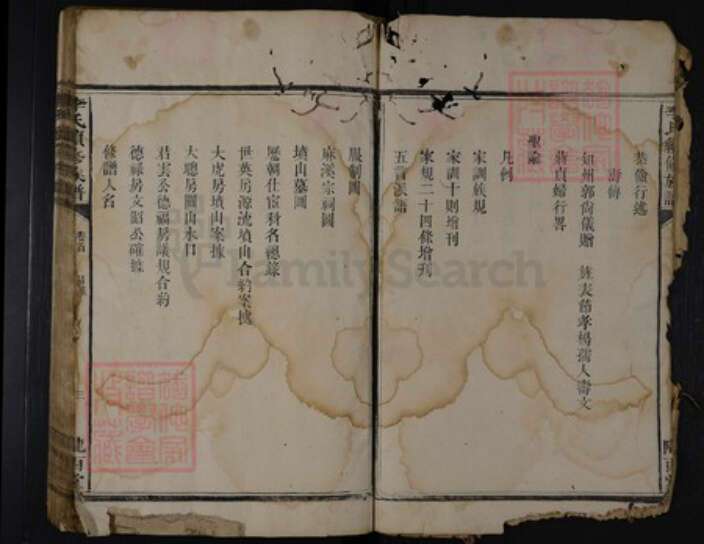 恭儉行述
壽傳
知州郭尚儀贈 旌表節孝楊孺人壽文
蔣貞婦行畧
聖諭
凡例
家訓族規
家訓十則增刊
家規二十四條增刊
五言派語
服制圖
麻溪宗祠圖
墳山墓圖
歷朝仕宦科名總錄
世英房源流墳山合約案據
大虎房墳山案據
大聰房圖山水口
君雲公德福房議規合約
德祿房文昭公確據
修譜人名
李氏續修族譜
FamilySearch